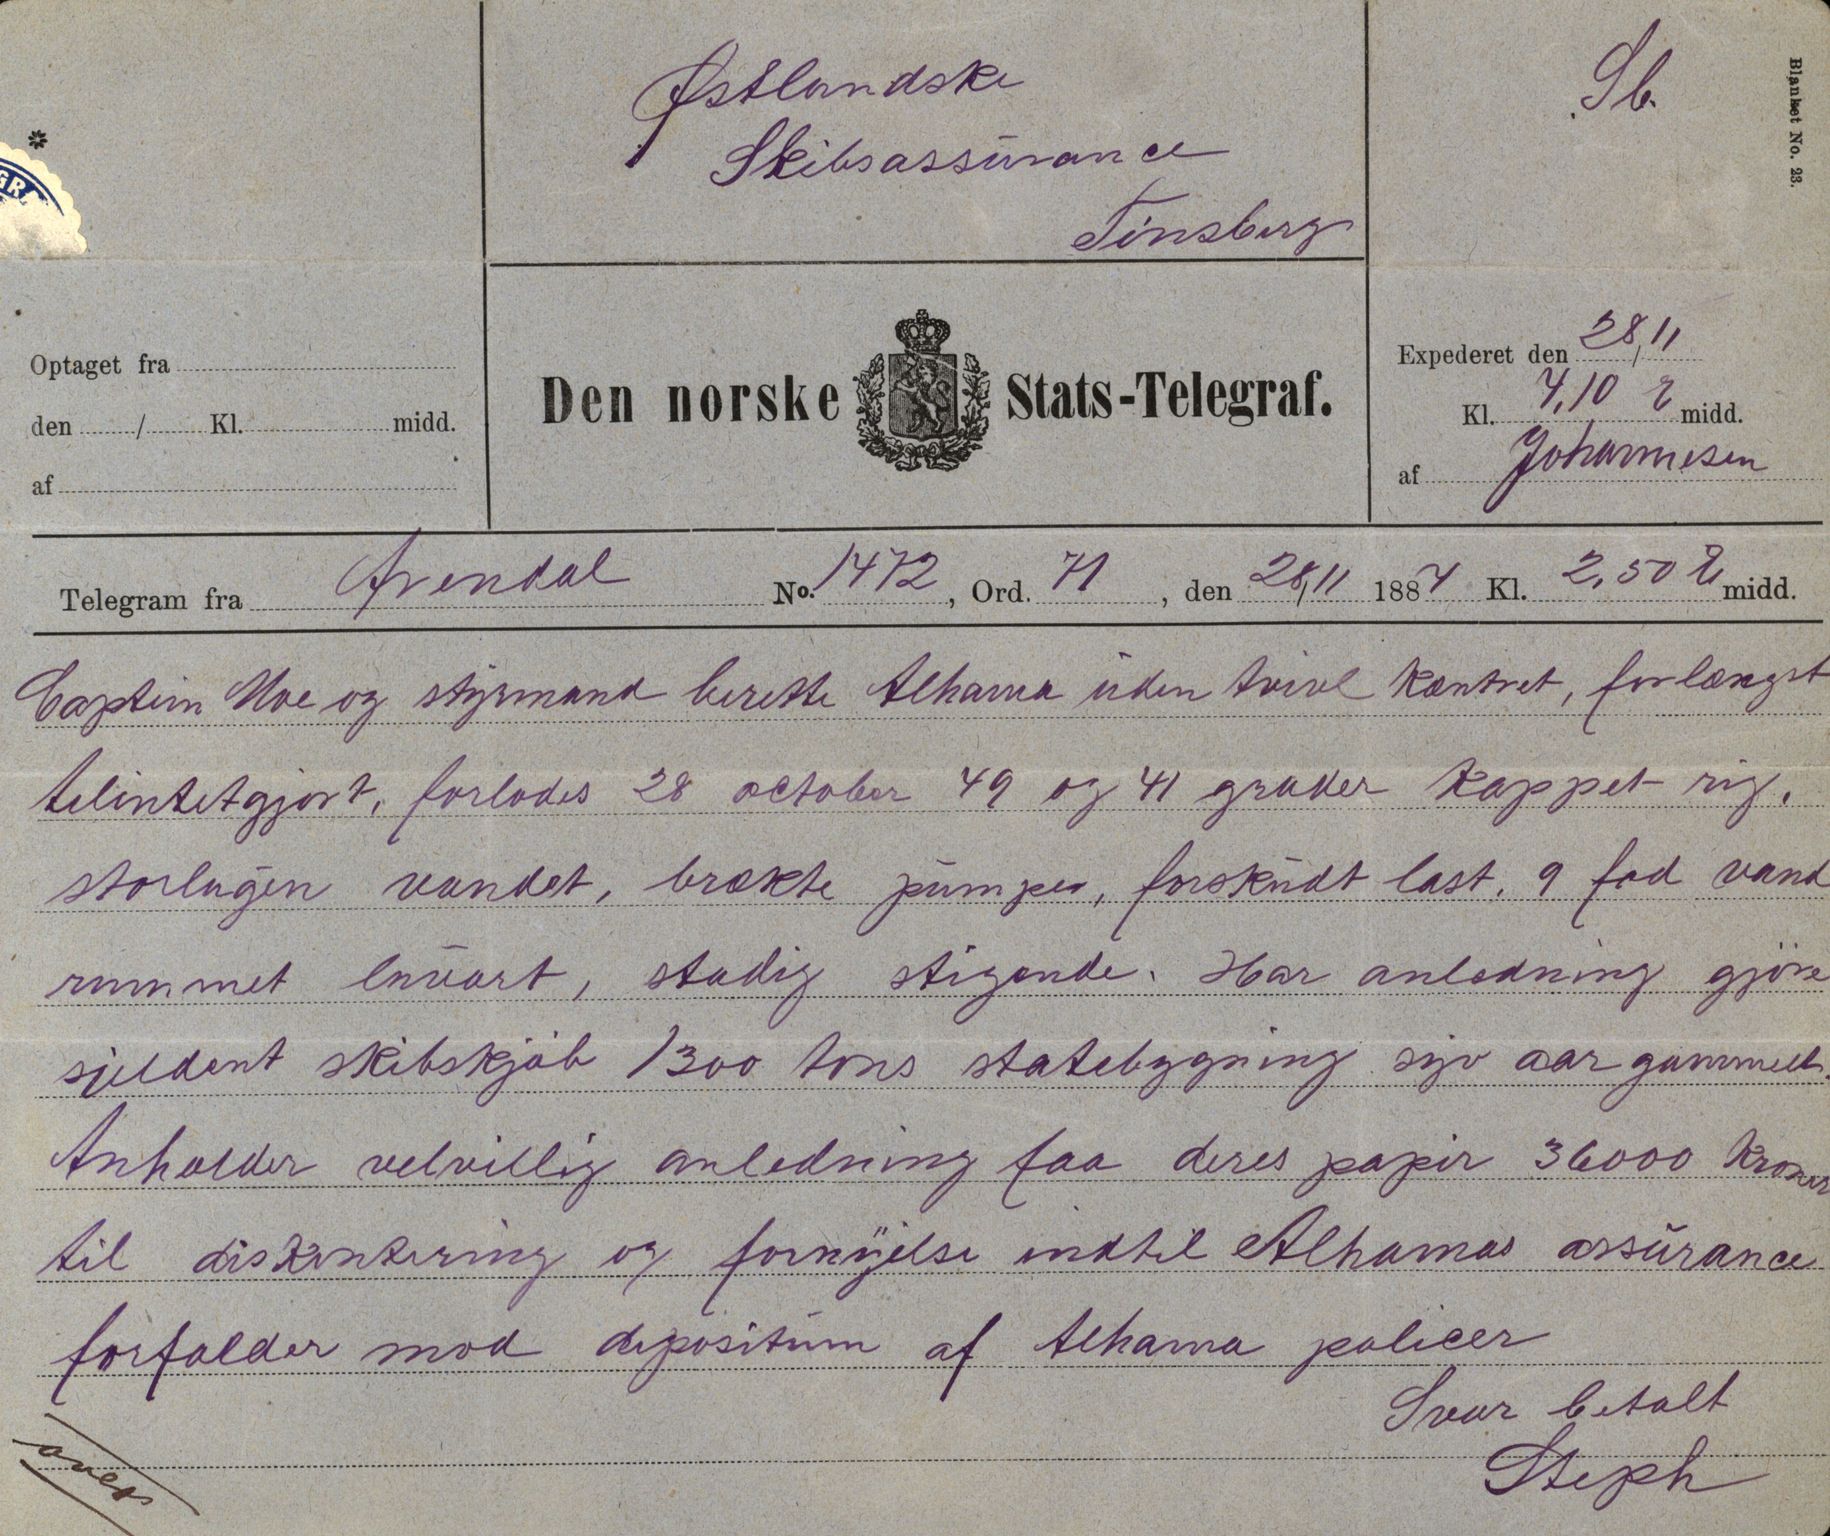 Østlandske
Skibsassürance
Tönsberg
Sb.
Blanket No. 23.
GRA
Optaget fra
den / Kl. midd.
af
Den norske Stats-Telegraf.
Expederet den 28/11
Kl. 4,10 E midd.
af Johannesen
Telegram fra Arendal No. 1472, Ord. 71, den 28/11 1884 Kl. 2,50 E midd.
Captein Moe og styrmand berette Alhama üden tvivl kæntret, forlængst
telintetgjort, forlodes 28 october 49 og 41 grader kappet rig,
storlugen vandet, brækte pümper, forsküdt last, 9 fod vand
rummet luvart, stadig stigende. Har anledning gjöre
sjeldent skibskjöb 1300 tons statebygning syv aar gammelt.
Anholder velvillig anledning faa deres papir 36000 kroner
til diskontering og fornÿelse indtil Alhamas assürance
forfalder mod depositüm af Alhama policer
Svar betalt
Steph